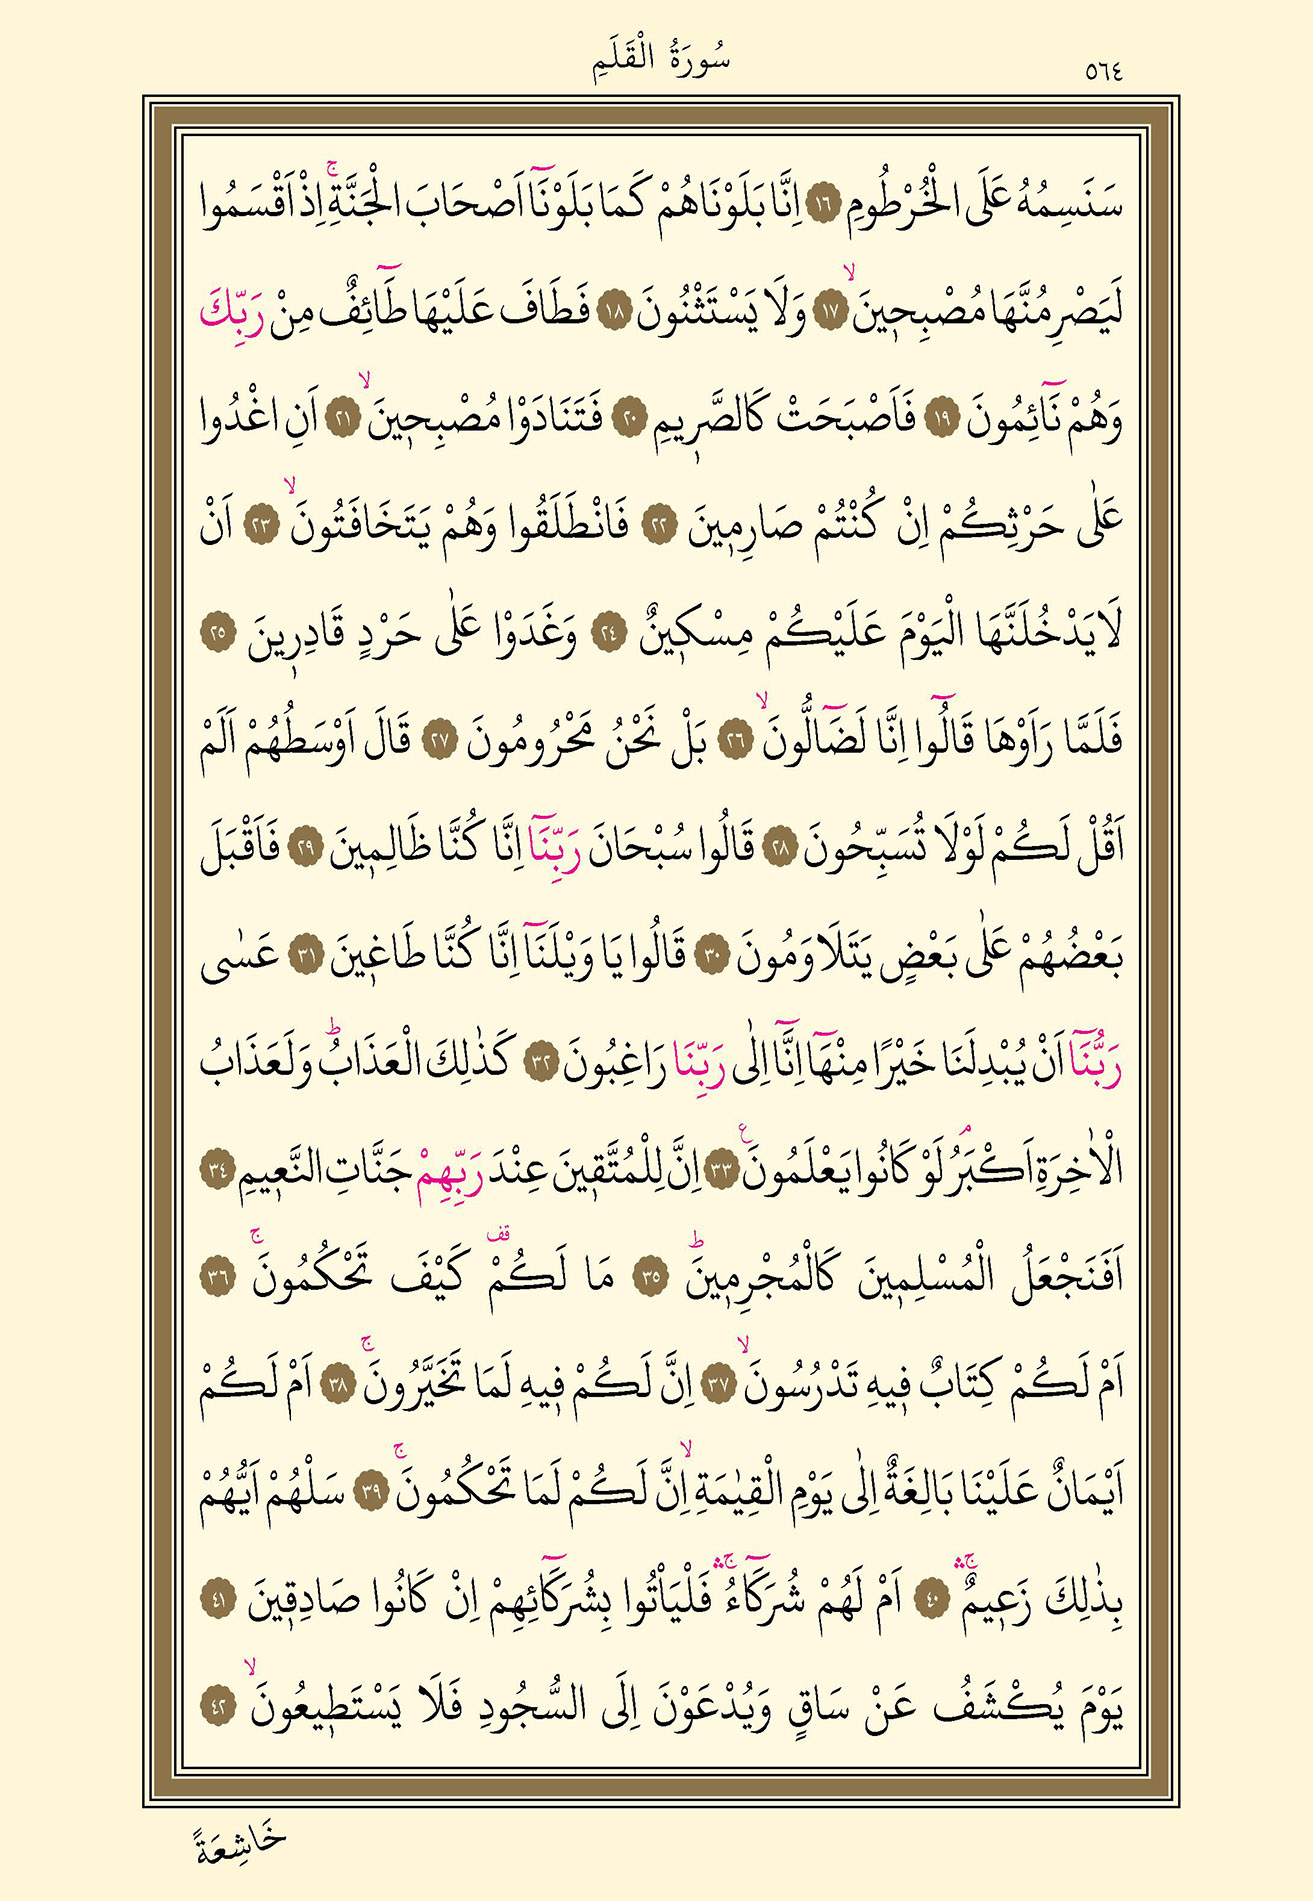 ٥٦٤
سُورَةُ الْقَلَمِ
سَنَسِمُهُ عَلَى الْخُرْطُومِ ١٦ اِنَّا بَلَوْنَاهُمْ كَمَا بَلَوْنَٓا اَصْحَابَ الْجَنَّةِۚ اِذْ اَقْسَمُوا
لَيَصْرِمُنَّهَا مُصْبِح۪ينَۙ ١٧ وَلَا يَسْتَثْنُونَ ١٨ فَطَافَ عَلَيْهَا طَٓائِفٌ مِنْ رَبِّكَ
وَهُمْ نَٓائِمُونَ ١٩ فَاَصْبَحَتْ كَالصَّر۪يمِ ٢٠ فَتَنَادَوْا مُصْبِح۪ينَۙ ٢١ اَنِ اغْدُوا
عَلٰى حَرْثِكُمْ اِنْ كُنْتُمْ صَارِم۪ينَ ٢٢ فَانْطَلَقُوا وَهُمْ يَتَخَافَتُونَۙ ٢٣ اَنْ
لَا يَدْخُلَنَّهَا الْيَوْمَ عَلَيْكُمْ مِسْك۪ينٌ ٢٤ وَغَدَوْا عَلٰى حَرْدٍ قَادِر۪ينَ ٢٥
فَلَمَّا رَاَوْهَا قَالُٓوا اِنَّا لَضَٓالُّونَۙ ٢٦ بَلْ نَحْنُ مَحْرُومُونَ ٢٧ قَالَ اَوْسَطُهُمْ اَلَمْ
اَقُلْ لَكُمْ لَوْلَا تُسَبِّحُونَ ٢٨ قَالُوا سُبْحَانَ رَبِّنَٓا اِنَّا كُنَّا ظَالِم۪ينَ ٢٩ فَاَقْبَلَ
بَعْضُهُمْ عَلٰى بَعْضٍ يَتَلَاوَمُونَ ٣٠ قَالُوا يَا وَيْلَنَٓا اِنَّا كُنَّا طَاغ۪ينَ ٣١ عَسٰى
رَبُّنَٓا اَنْ يُبْدِلَنَا خَيْرًا مِنْهَٓا اِنَّٓا اِلٰى رَبِّنَا رَاغِبُونَ ٣٢ كَذٰلِكَ الْعَذَابُۜ وَلَعَذَابُ
الْاٰخِرَةِ اَكْبَرُۢ لَوْ كَانُوا يَعْلَمُونَ ع ٣٣ اِنَّ لِلْمُتَّق۪ينَ عِنْدَ رَبِّهِمْ جَنَّاتِ النَّع۪يمِ ٣٤
اَفَنَجْعَلُ الْمُسْلِم۪ينَ كَالْمُجْرِم۪ينَۜ ٣٥ مَا لَكُمْ۠ قف كَيْفَ تَحْكُمُونَۚ ٣٦
اَمْ لَكُمْ كِتَابٌ ف۪يهِ تَدْرُسُونَۙ ٣٧ اِنَّ لَكُمْ ف۪يهِ لَمَا تَخَيَّرُونَۚ ٣٨ اَمْ لَكُمْ
اَيْمَانٌ عَلَيْنَا بَالِغَةٌ اِلٰى يَوْمِ الْقِيٰمَةِۙ اِنَّ لَكُمْ لَمَا تَحْكُمُونَۚ ٣٩ سَلْهُمْ اَيُّهُمْ
بِذٰلِكَ زَع۪يمٌۚۛ ٤٠ اَمْ لَهُمْ شُرَكَٓاءُۚۛ فَلْيَأْتُوا بِشُرَكَٓائِهِمْ اِنْ كَانُوا صَادِق۪ينَ ٤١
يَوْمَ يُكْشَفُ عَنْ سَاقٍ وَيُدْعَوْنَ اِلَى السُّجُودِ فَلَا يَسْتَط۪يعُونَۙ ٤٢
خَاشِعَةً